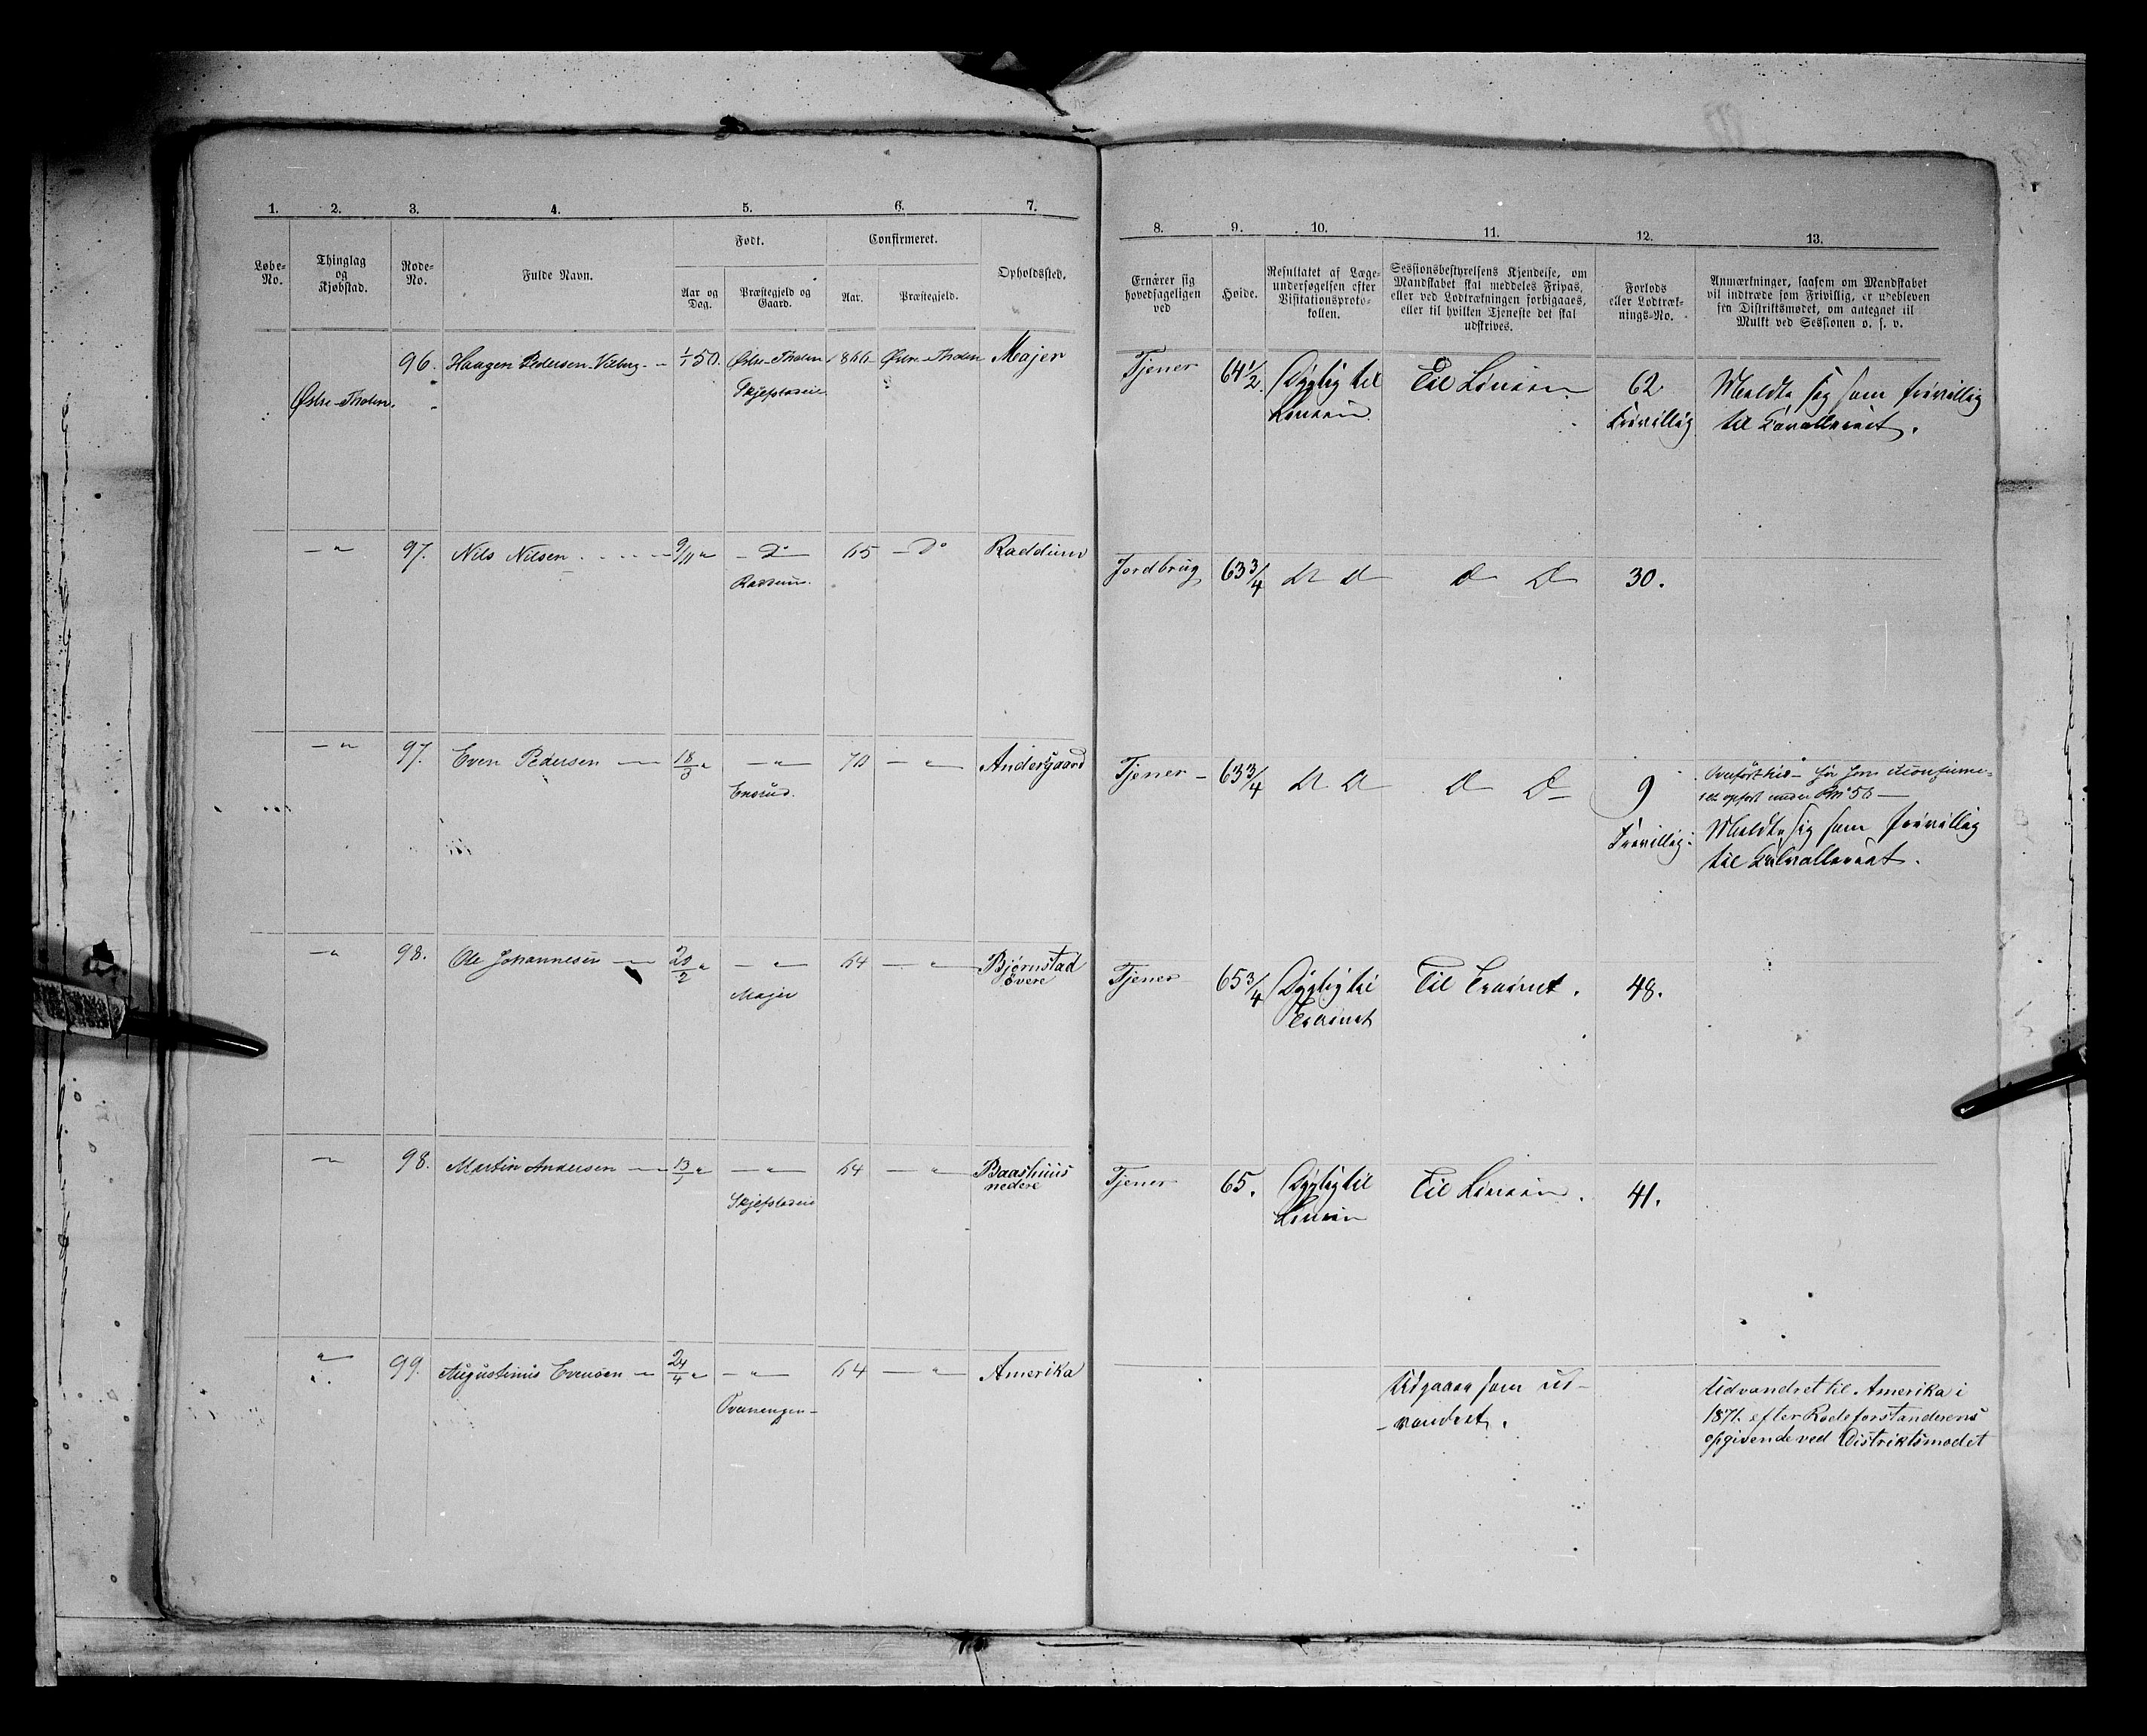 1. 2. 3. 4. 5. 6. 7.
Løbe-No.
Thinglag og Kjøbstad.
Rode-No.
Fulde Navn.
Født.
Aar og Dag.
Præstegjeld og Gaard.
Confirmeret.
Aar.
Præstegjeld.
Opholdssted.
8. 9. 10. 11. 12. 13.
Ernærer sig hovedsageligen ved
Høide.
Resultatet af Læge-undersøgelsen efter Visitationsproto-kollen.
Sessionsbestyrelsens Kjendelse, om Mandskabet skal meddeles Fripas, eller ved Lodtrækningen forbigaaes, eller til hvilken Tjeneste det skal udskrives.
Forlods eller Lodtræk-nings-No.
Anmærkninger, saasom om Mandskabet vil indtræde som Frivillig, er udebleven fra Distriktsmødet, om antegnet til Mulkt ved Sessionen o. s. v.
Østre-Thoten. 96. Haagen Pedersen Vilberg 1/1 50. Østre-Thoten 1866 Østre-Thoten Majer
Skjefstadeie
Tjener 64 1/2. Dygtig til Linien Til Linien. 62 Frivillig
Meldte sig som frivillig
til Cavalleriet.
— " 97. Nils Nilsen 9/11 " — Do — 65 — Do Raddum
Raddum.
Jordbrug 63 3/4 D D D D 30.
— " 97. Even Pedersen 18/3 " — " — 70 — " — Andersgaard
Enerud.
Tjener 63 3/4 D D D D 9 Frivillig
Overført hid — før som uconfirme-
ret opført under No 56 —
Meldte sig som frivillig
til Cavalleriet.
— " 98. Ole Johannesen 20/2 " — " — 64 — " — Bjørnstad øvere
Majer
Tjener 65 3/4 Dygtig til Trainet Til Trainet. 48.
— " 98. Martin Andersen 13/ " — " — 64 — " Baashuus nedere
Skjefstadeie
Tjener 65. Dygtig til Linien Til Linien. 41.
" 99. Augustinus Evensen 24/4 " — " — 64 — " Amerika
Udgaaer som ud-
-vandret.
Udvandret til Amerika i
1871 efter Rodeforstanderens
opgivende ved Distriktsmødet